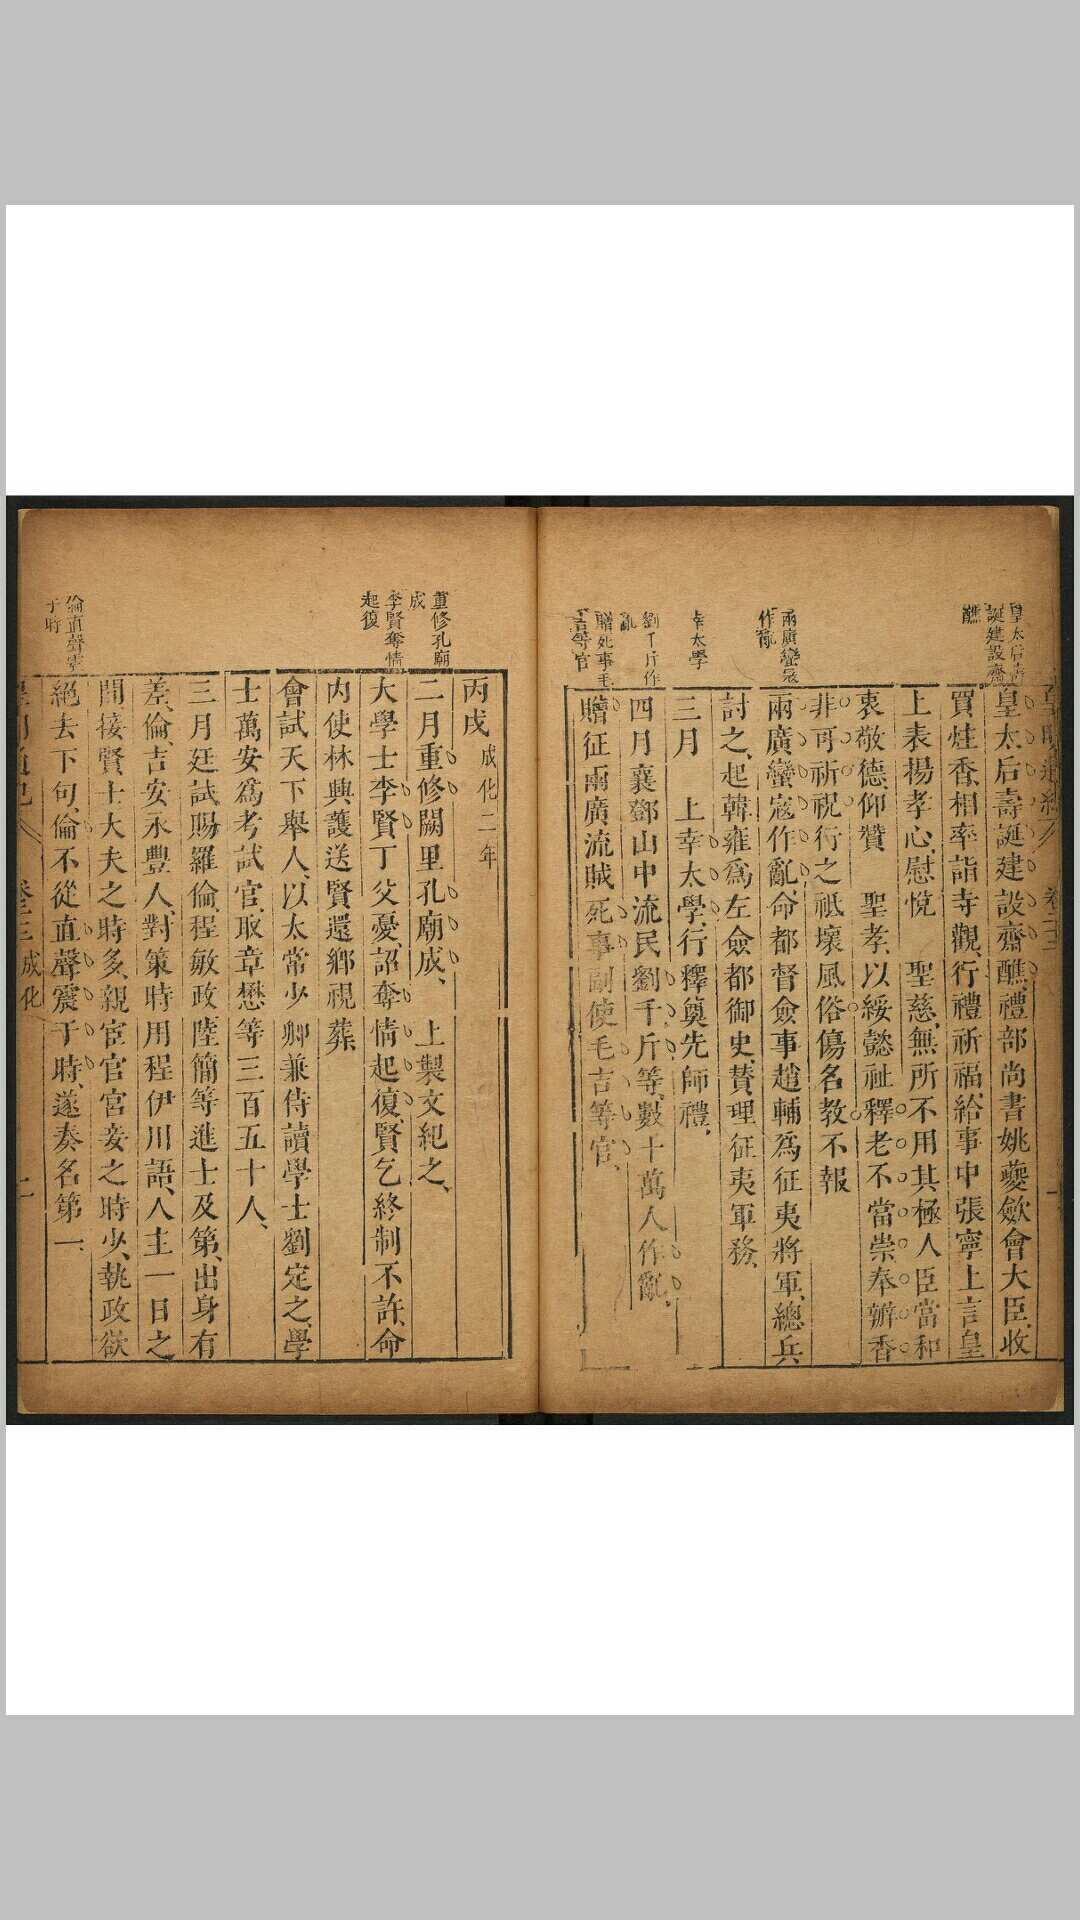 皇太后壽誕建設齋醮
皇太后壽誕建設齋醮禮部尚書姚夔歛會大臣收
買炷香相率詣寺觀行禮祈福給事中張寧上言皇
上表揚孝心慰悅　聖慈無所不用其極人臣當和
衷敬德仰贊　聖孝以綏懿祉釋老不當崇奉瓣香
非可祈祝行之祗壞風俗傷名教不報
兩廣蠻寇作亂
兩廣蠻寇作亂命都督僉事趙輔為征夷將軍總兵
討之起韓雍為左僉都御史贊理征夷軍務
幸太學
三月　上幸太學行釋奠先師禮
劉千斤作亂
四月襄鄧山中流民劉千斤等數十萬人作亂
贈死事毛吉等官
贈征兩廣流賊死事副使毛吉等官
丙戌 成化二年
重修孔廟成
二月重修闕里孔廟成　上製文紀之
李賢奪情起復
大學士李賢丁父憂詔奪情起復賢乞終制不許命
內使林興護送賢還鄉視葬
會試天下舉人以太常少卿兼侍讀學士劉定之學
士萬安為考試官取章懋等三百五十人
三月廷試賜羅倫程敏政陸簡等進士及第出身有
差倫吉安永豐人對策時用程伊川語人主一日之
間接賢士大夫之時多親宦官宮妾之時少執政欲
倫直聲震于時
絕去下句倫不從直聲震于時遂奏名第一
卷二三 成化